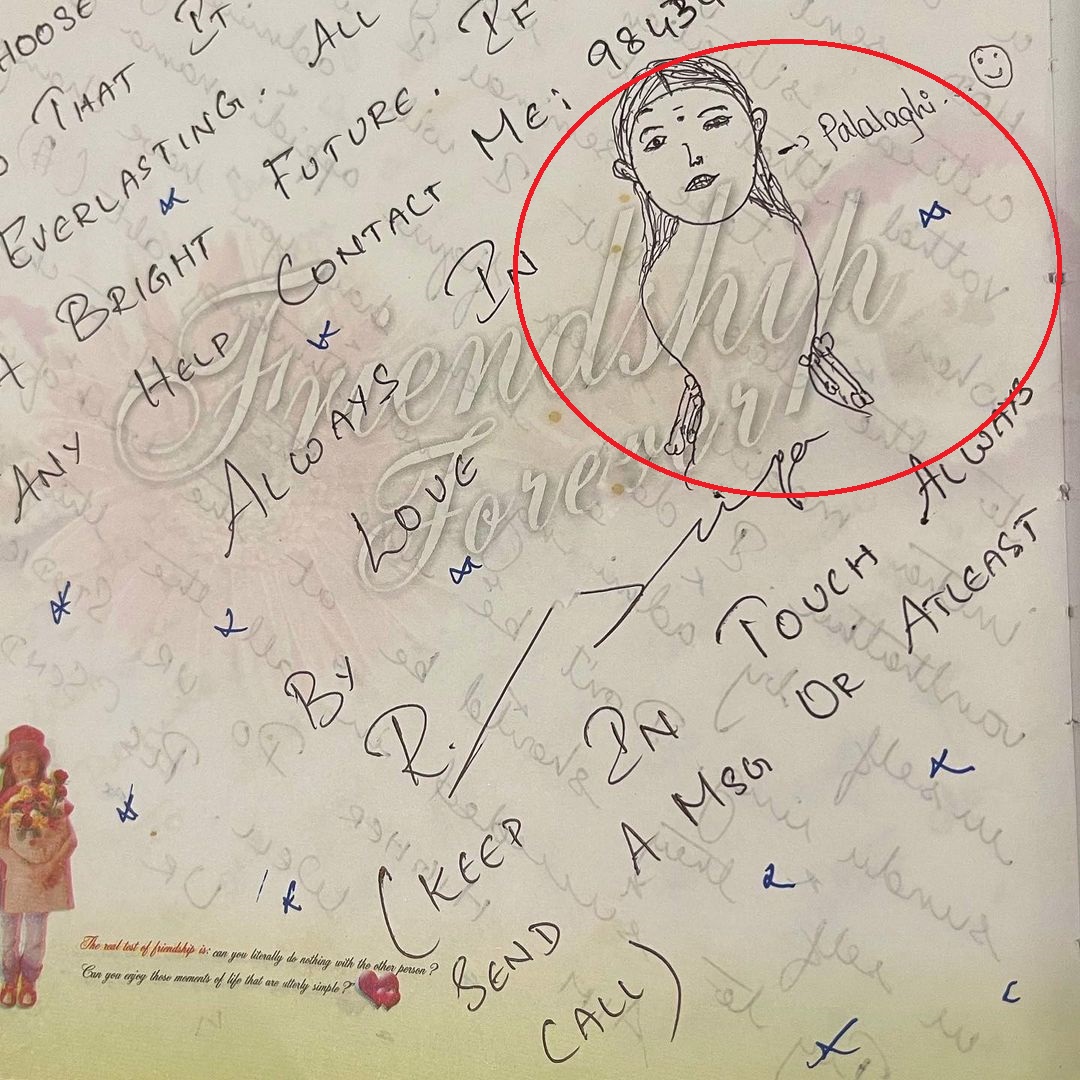 HOOSE
THAT IT
EVERLASTING. ALL
A BRIGHT FUTURE. IF
ANY HELP CONTACT ME: 98434
→ Palalaghi... 
ALWAYS IN
LOVE
Friendship
Forever
BY
R.
(KEEP IN TOUCH ALWAYS
SEND A MSG OR ATLEAST
CALL)
The real test of friendship is: can you literally do nothing with the other person?
Can you enjoy those moments of life that are utterly simple?"